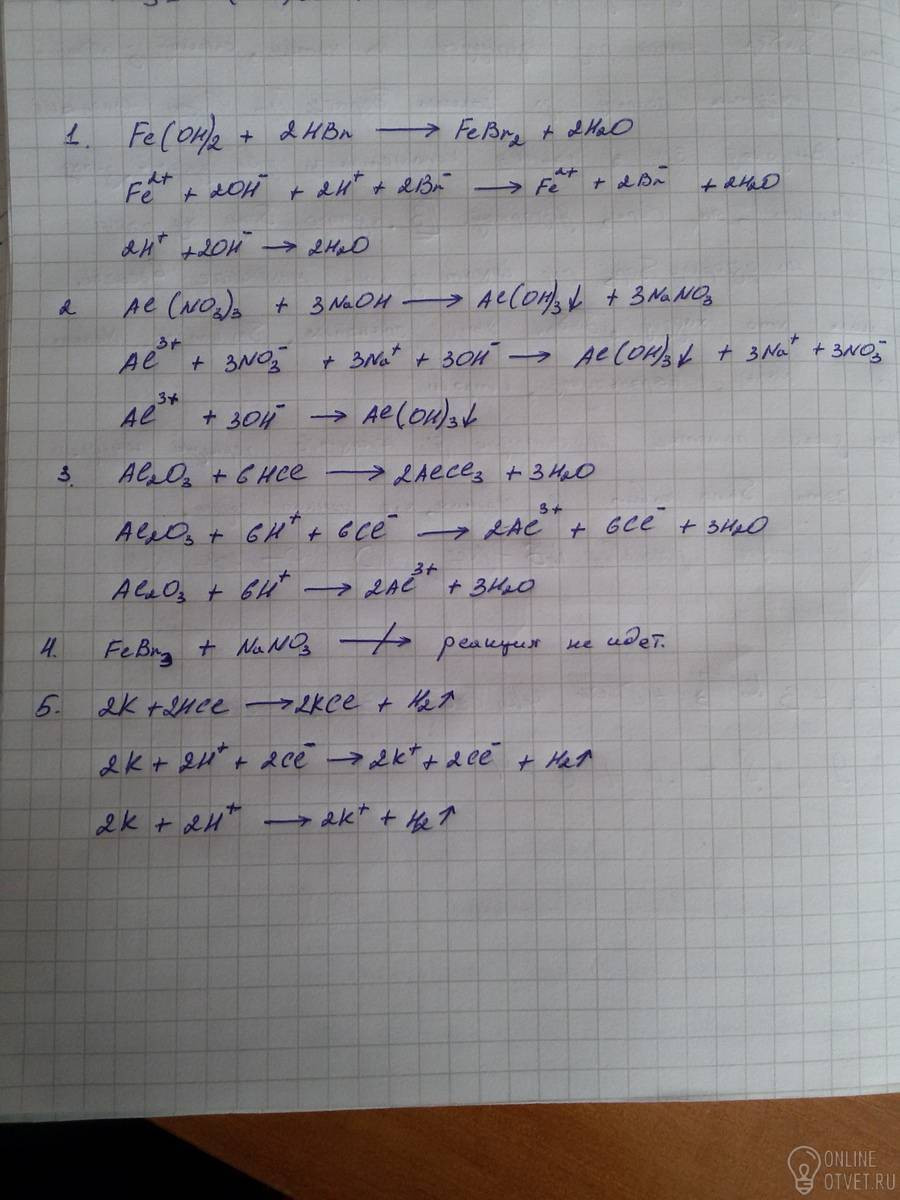 1. Fe(OH)2 + 2HBr → FeBr2 + 2H2O
Fe2+ + 2OH- + 2H+ + 2Br- → Fe2+ + 2Br- + 2H2O
2H+ + 2OH- → 2H2O
2 Al(NO3)3 + 3NaOH → Al(OH)3↓ + 3NaNO3
Al3+ + 3NO3- + 3Na+ + 3OH- → Al(OH)3↓ + 3Na+ + 3NO3-
Al3+ + 3OH- → Al(OH)3↓
3. Al2O3 + 6HCl → 2AlCl3 + 3H2O
Al2O3 + 6H+ + 6Cl- → 2Al3+ + 6Cl- + 3H2O
Al2O3 + 6H+ → 2Al3+ + 3H2O
4. FeBr3 + NaNO3 ↛ реакция не идет.
5. 2K + 2HCl → 2KCl + H2↑
2K + 2H+ + 2Cl- → 2K+ + 2Cl- + H2↑
2K + 2H+ → 2K+ + H2↑
ONLINE
OTVET.RU